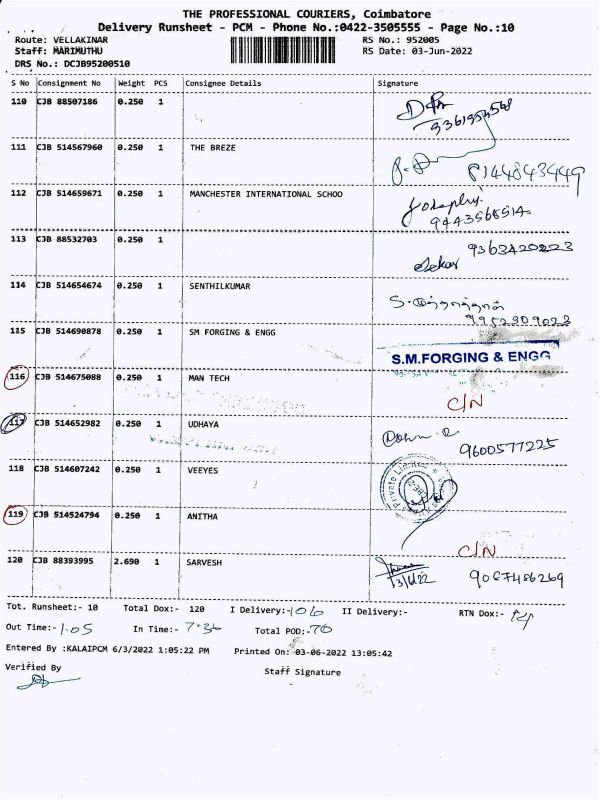 THE PROFESSIONAL COURIERS, Coimbatore
Delivery Runsheet - PCM - Phone No.:0422-3505555 - Page No.:10
Route: VELLAKINAR RS No.: 952005
Staff: MARIMUTHU RS Date: 03-Jun-2022
DRS No.: DCJB95200510
S No Consignment No Weight PCS Consignee Details Signature
110 CJB 88507186 0.250 1
111 CJB 514567960 0.250 1 THE BREZE
8144843449
112 CJB 514659671 0.250 1 MANCHESTER INTERNATIONAL SCHOO
9443565514
113 CJB 88532703 0.250 1 9363420223
Sekar
114 CJB 514654674 0.250 1 SENTHILKUMAR
9952909023
115 CJB 514690878 0.250 1 SM FORGING & ENGG
S.M.FORGING & ENGG
116 CJB 514675088 0.250 1 MAN TECH
C/N
117 CJB 514652982 0.250 1 UDHAYA
9600577225
118 CJB 514607242 0.250 1 VEEYES
119 CJB 514524794 0.250 1 ANITHA
C/N
120 CJB 88393995 2.690 1 SARVESH
3/6/22 9087456269
Tot. Runsheet:- 10 Total Dox:- 120 I Delivery:- 106 II Delivery:- RTN Dox:- 14
Out Time:- 1.05 In Time:- 7.36 Total POD:- 70
Entered By :KALAIPCM 6/3/2022 1:05:22 PM Printed On: 03-06-2022 13:05:42
Verified By Staff Signature